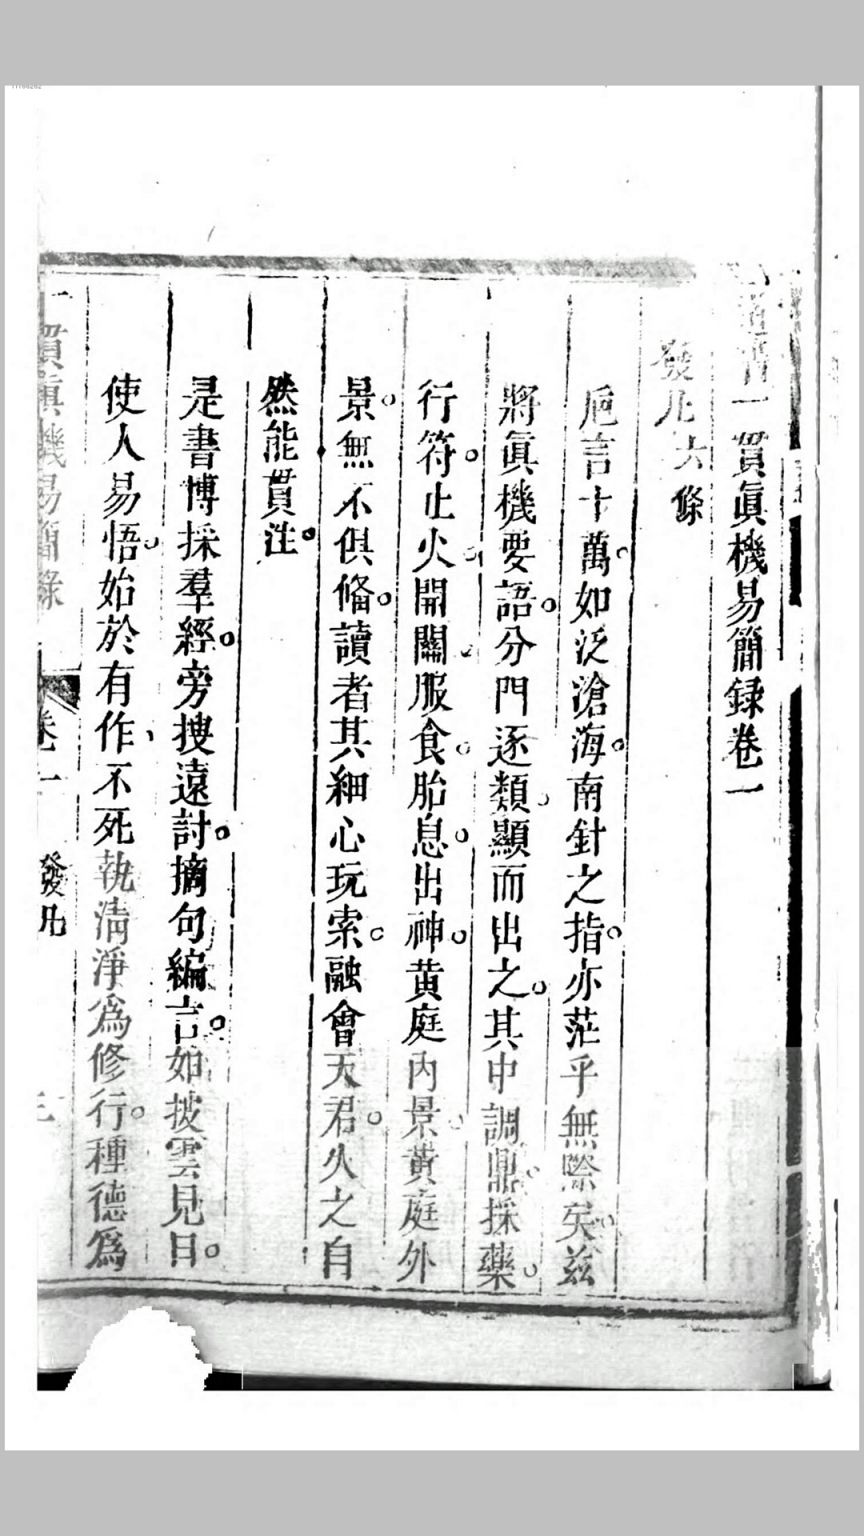 道書一貫眞機易簡録卷一
發凡六條
巵言十萬如泛滄海南針之指亦茫乎無際矣兹
將眞機要語分門逐類顯而出之其中調鼎採藥
行符止火開關服食胎息出神黄庭內景黄庭外
景無不俱備讀者其細心玩索融會天君久之自
然能貫注
是書博採羣經旁搜遠討摘句編言如披雲見日
使人易悟始於有作不死執淸淨爲修行種德爲
一貫眞機易簡錄 卷一 發凡